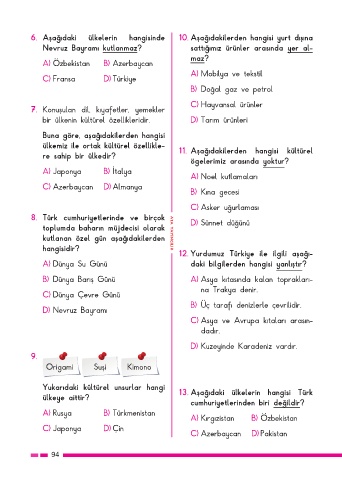 6. Aşağıdaki ülkelerin hangisinde
Nevruz Bayramı kutlanmaz?
A) Özbekistan B) Azerbaycan
C) Fransa D) Türkiye
7. Konuşulan dil, kıyafetler, yemekler
bir ülkenin kültürel özellikleridir.
Buna göre, aşağıdakilerden hangisi
ülkemiz ile ortak kültürel özellikle-
re sahip bir ülkedir?
A) Japonya B) İtalya
C) Azerbaycan D) Almanya
8. Türk cumhuriyetlerinde ve birçok
toplumda baharın müjdecisi olarak
kutlanan özel gün aşağıdakilerden
hangisidir?
A) Dünya Su Günü
B) Dünya Barış Günü
C) Dünya Çevre Günü
D) Nevruz Bayramı
9.
Origami Suşi Kimono
Yukarıdaki kültürel unsurlar hangi
ülkeye aittir?
A) Rusya B) Türkmenistan
C) Japonya D) Çin
94
10. Aşağıdakilerden hangisi yurt dışına
sattığımız ürünler arasında yer al-
maz?
A) Mobilya ve tekstil
B) Doğal gaz ve petrol
C) Hayvansal ürünler
D) Tarım ürünleri
11. Aşağıdakilerden hangisi kültürel
ögelerimiz arasında yoktur?
A) Noel kutlamaları
B) Kına gecesi
C) Asker uğurlaması
D) Sünnet düğünü
12. Yurdumuz Türkiye ile ilgili aşağı-
daki bilgilerden hangisi yanlıştır?
A) Asya kıtasında kalan toprakları-
na Trakya denir.
B) Üç tarafı denizlerle çevrilidir.
C) Asya ve Avrupa kıtaları arasın-
dadır.
D) Kuzeyinde Karadeniz vardır.
13. Aşağıdaki ülkelerin hangisi Türk
cumhuriyetlerinden biri değildir?
A) Kırgızistan B) Özbekistan
C) Azerbaycan D) Pakistan